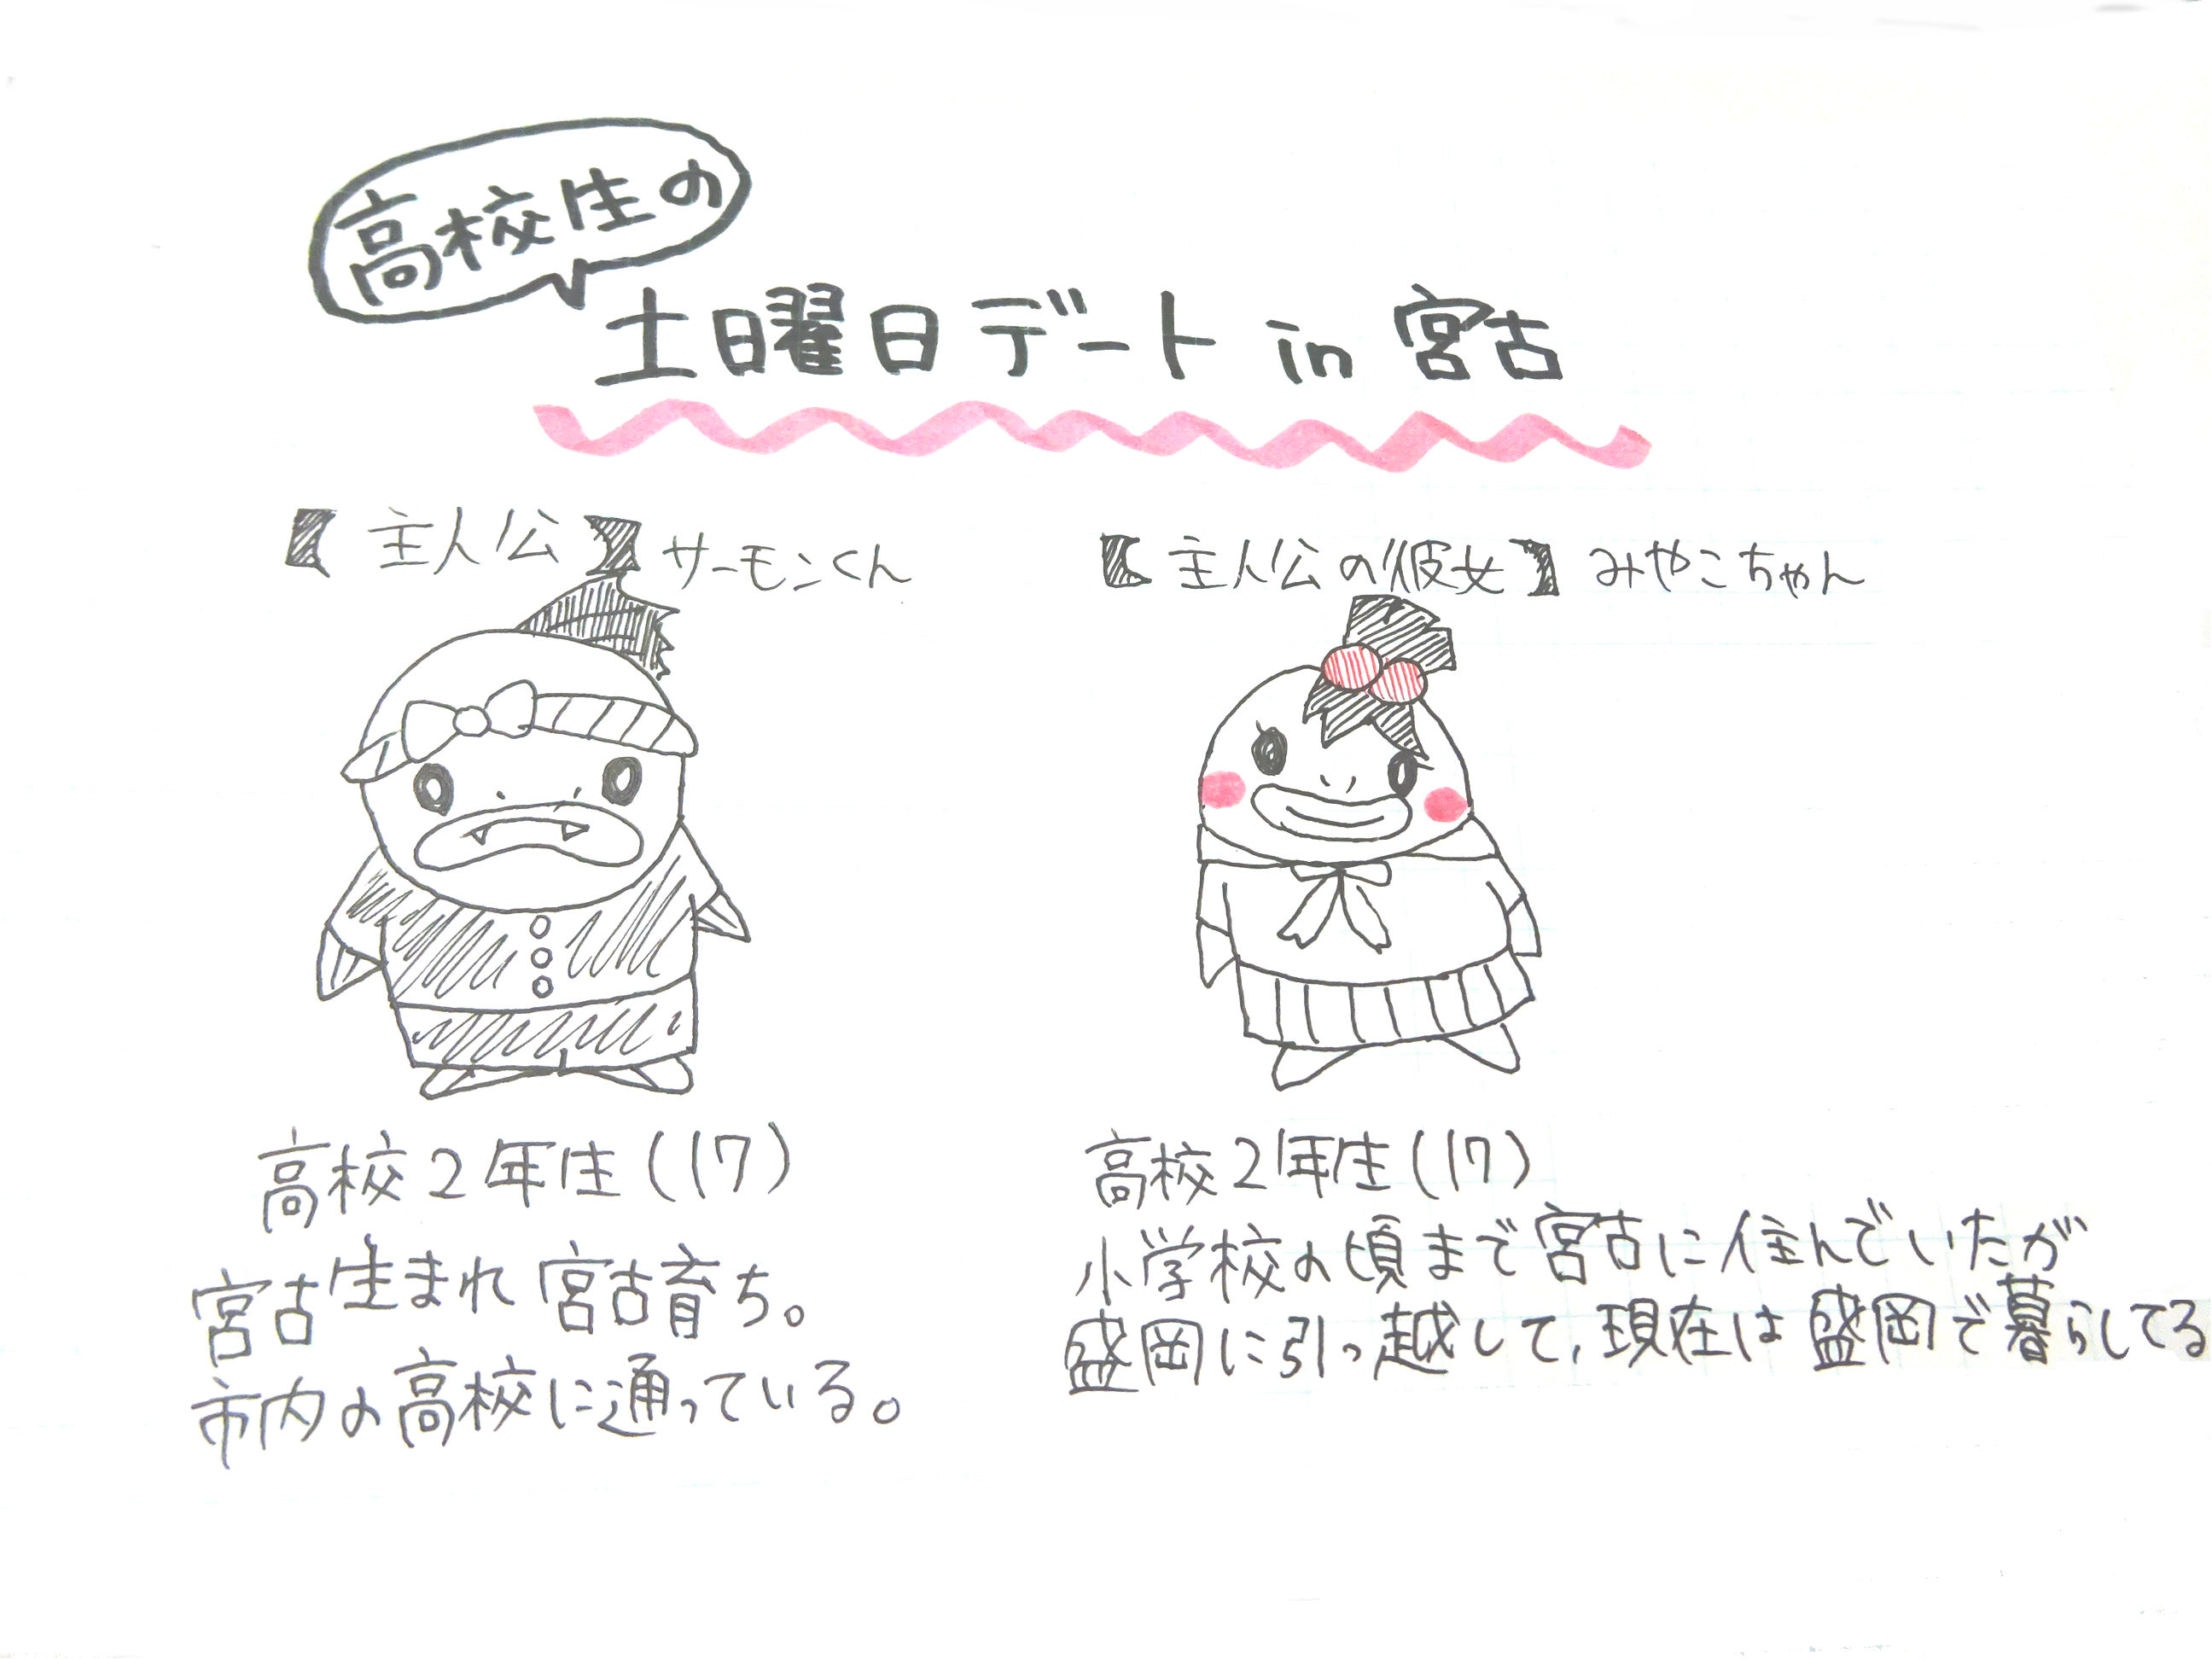 高校生の
土曜日デート in 宮古
【主人公】サーモンくん
【主人公の彼女】みやこちゃん
高校2年生(17)
宮古生まれ宮古育ち。
市内の高校に通っている。
高校2年生(17)
小学校の頃まで宮古に住んでいたが
盛岡に引っ越して、現在は盛岡で暮らしてる